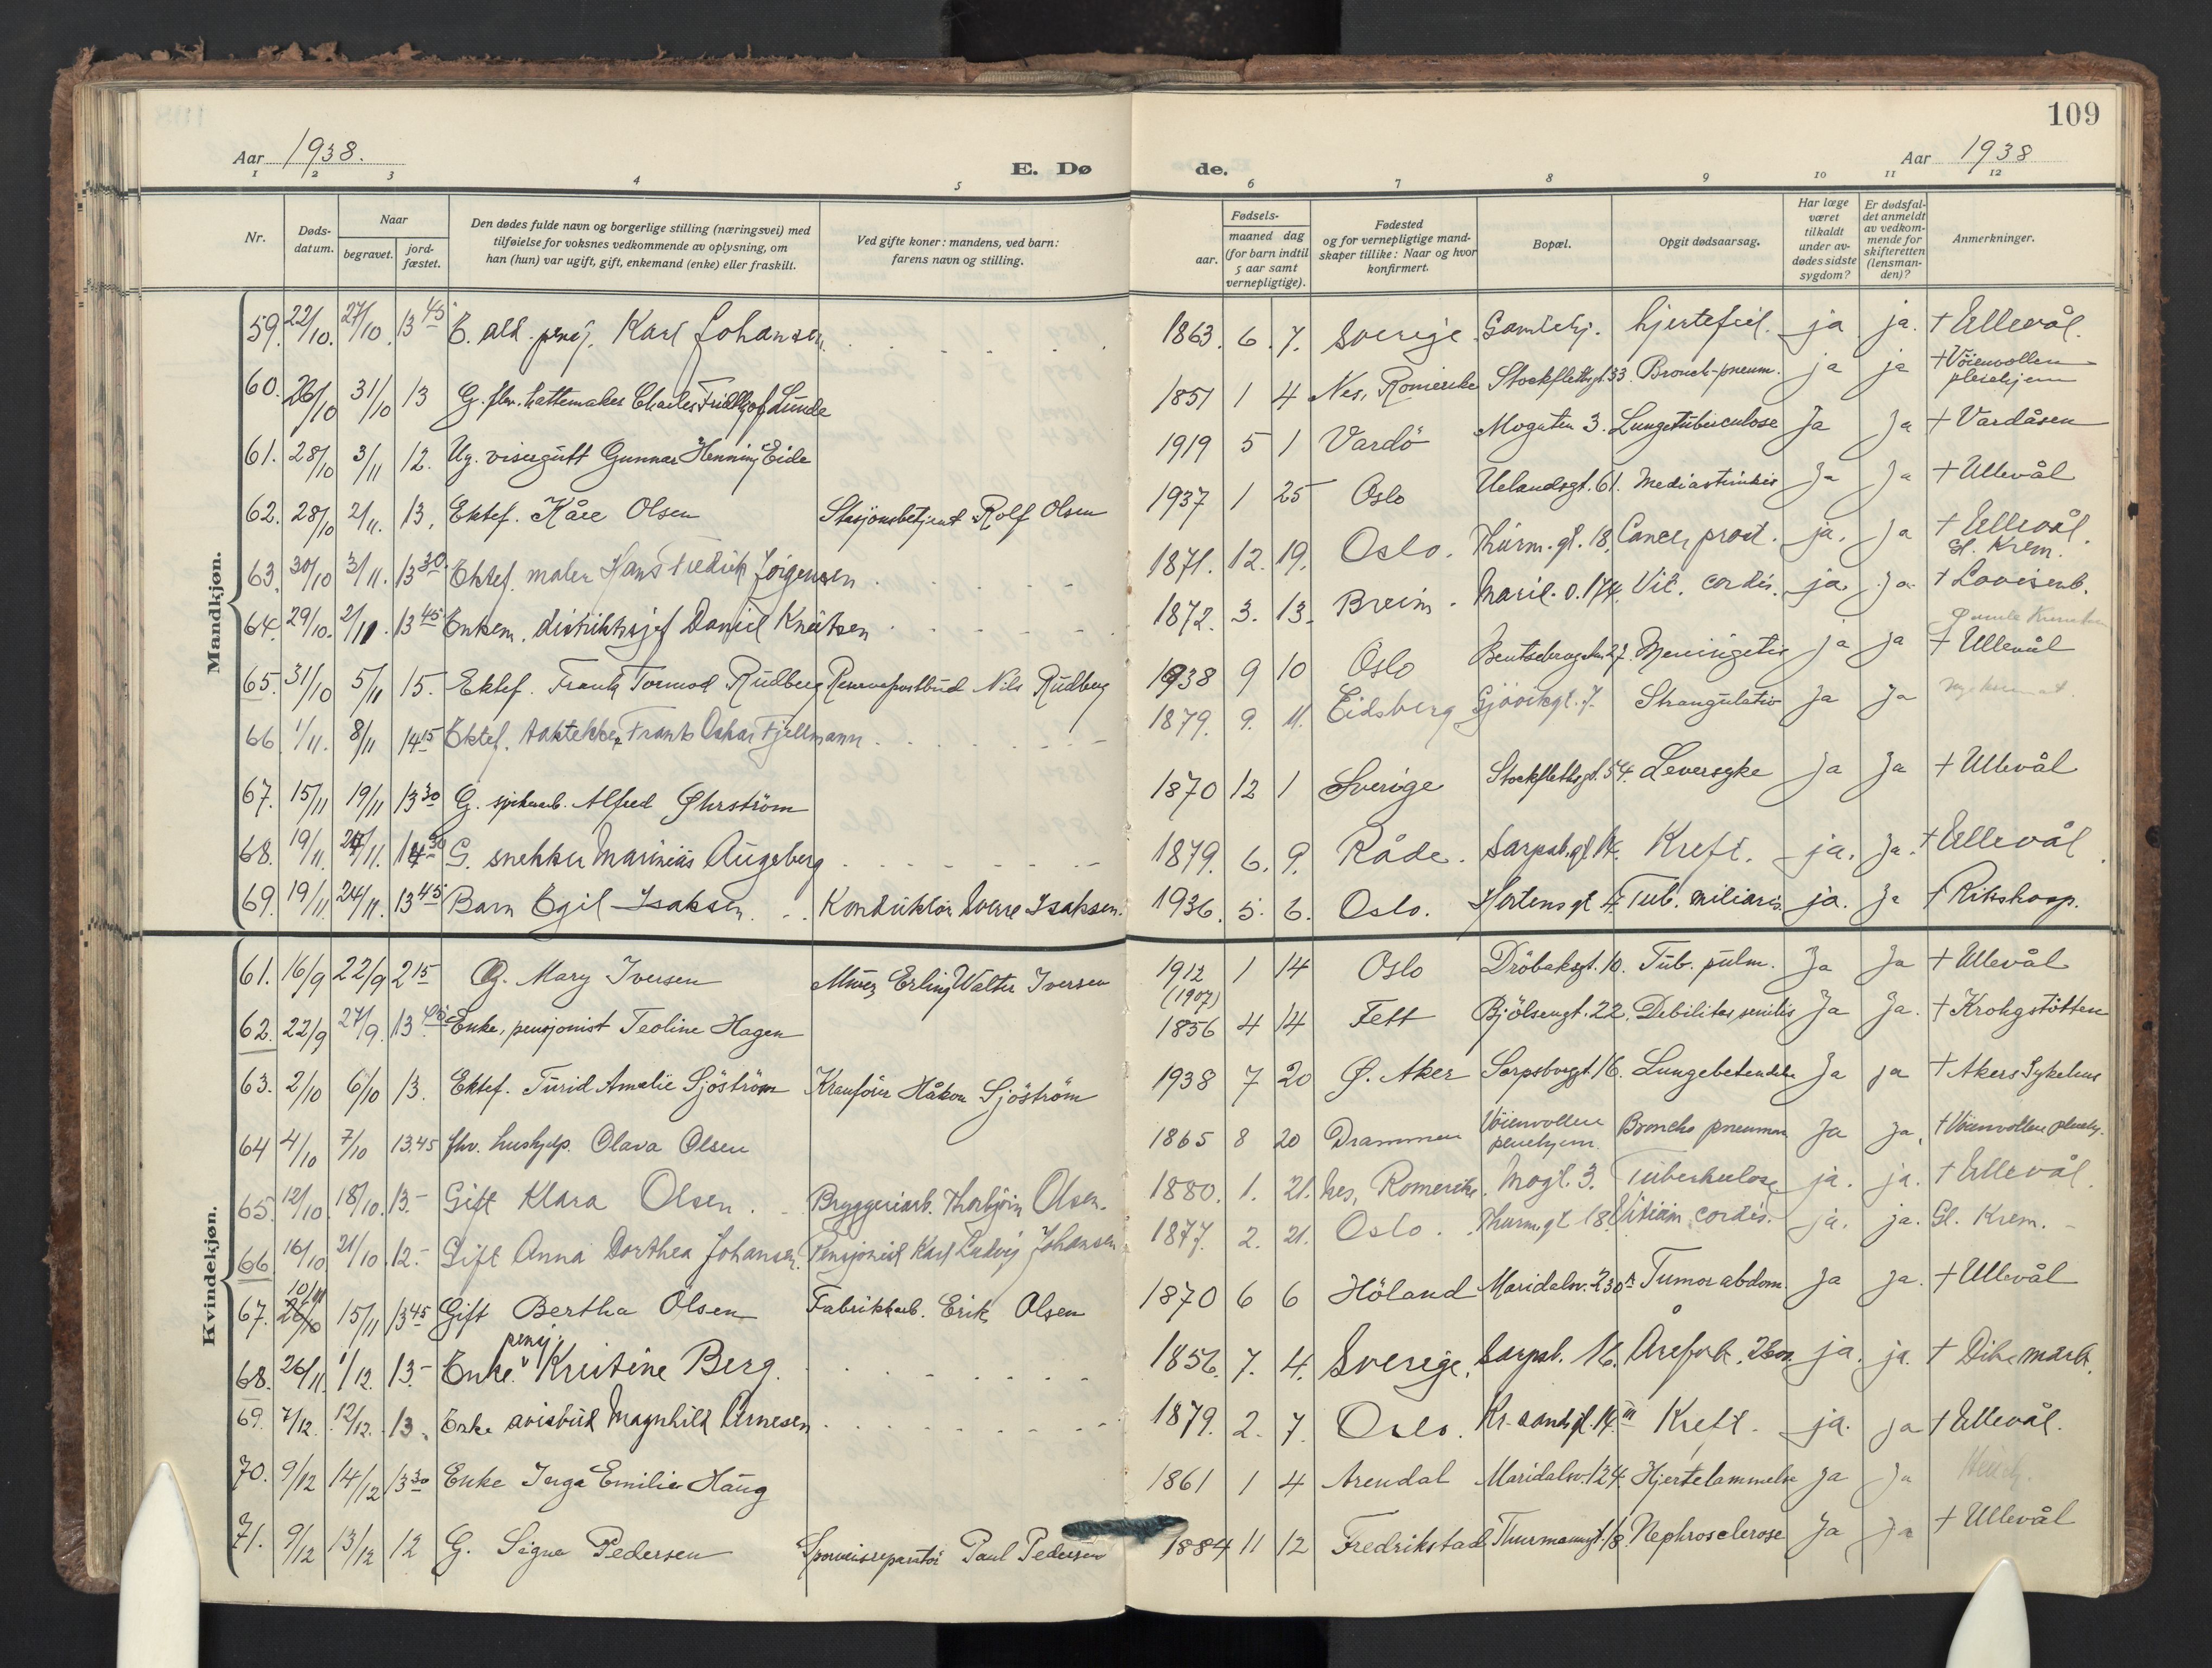 109
Aar 1938.
E. Dø de.
Aar 1938
1 2 3 4 5 6 7 8 9 10 11 12
Nr.
Døds-
datum.
Naar
begravet.
jord-
fæstet.
Den dødes fulde navn og borgerlige stilling (næringsvei) med
tilføielse for voksnes vedkommende av oplysning, om
han (hun) var ugift, gift, enkemand (enke) eller fraskilt.
Ved gifte koner: mandens, ved barn:
farens navn og stilling.
Fødsels-
aar.
maaned dag
(for barn indtil
5 aar samt
vernepligtige).
Fødested
og for vernepligtige mand-
skaper tillike: Naar og hvor
konfirmert.
Bopæl.
Opgit dødsaarsag.
Har læge
været
tilkaldt
under av-
dødes sidste
sygdom?
Er dødsfal-
det anmeldt
av vedkom-
mende for
skifteretten
(lensman-
den)?
Anmerkninger.
Mandkjøn.
59. 22/10. 27/10. 13 45 E. ald. pensj. Karl Johansen 1863. 6. 7. Sverige. Gamlehj. hjertefeil. ja ja. + Ullevål.
60. 26/10 31/10 13 G. fhv. hattemaker Charles Fridthjof Lunde 1851 1 4 Nes, Romerike Stockflethsgt. 33. Bronch-pneum. ja ja + Vöienvollen pleiehjem
61. 28/10 3/11 12. Ug. visergutt Gunnar Henning Eide 1919 5 1 Vardö Mogaten 3. Lungetuberculose Ja Ja + Vardåsen
62. 28/10 2/11. 13. Ektef. Kåre Olsen Stasjonsbetjent Rolf Olsen 1937 1 25 Oslo Uelandsgt. 61. Ja Ja + Ullevål
63. 30/10 3/11. 13 30 Ektef. maler Hans Fredrik Jörgensen 1871. 12. 19. Oslo. Thurm. gt. 18. Cancer prost. ja. ja + Ullevål.
Gl. Krem.
64. 29/10. 2/11. 13 45 Enkem. distriktsjef Daniel Knutsen 1872. 3. 13. Breim. Marid. v. 174. Vit. cordis. ja. ja. + Lovisenb.
Gamle
65. 31/10 5/11 15. Ektef. Frantz Tormod Rudberg Reservepostbud Nils Rudberg 1938 9 10 Oslo Bentsebrugatn. 27. Meningetis ja ja + Ullevål
66. 1/11. 8/11 14 15 Ektef. Frants Oskar Fjellmann. 1879. 9. 11. Eidsberg Gjövikgt. 7. Strangulatio Ja Ja
67. 15/11 19/11 13 30 G. Alfred Öhrström 1870 12 1 Sverige Stockflethsgt. 54. Leversyke Ja Ja + Ullevål
68. 19/11. 24/11. 14 30 G. snekker Marinius Augeberg 1879. 6. 9. Råde. Sarpsb. gt 14. Kreft. ja. Ja. + Ullevål.
69. 19/11 24/11. 13 45 Barn Egil Isaksen. Konduktör Sverre Isaksen. 1936. 5. 6. Oslo. Hortensgt 4. Tub. miliaris. ja. Ja + Rikshosp.
Kvindekjøn.
61. 16/9 22/9 2 15 G. Mary Iversen Murer Erling Walter Iversen 1912 (1907) 1 14 Oslo Dröbaksgt. 10. Tub. pulm. Ja Ja + Ullevål
62. 22/9 27/9. 13 45 Enke, pensjonist Teoline Hagen 1856 4 14 Fett Bjölsengt. 22. Debilitas senilis Ja Ja. + Krohgstötten
63. 2/10 6/10 13. Ektef. Turid Amalie Sjöström Kranförer Håkon Sjöström 1938 7 20 Ø. Aker Sarpsborggt. 16. Lungebetendelse Ja ja + Akers Sykehus
64 4/10 7/10 13.45 fhv. hushjelp. Olava Olsen 1865 8 20 Drammen Vöienvollen pleiehjem. Broncho pneumoni Ja Ja. + Vöienvollen pleiehj.
65. 12/10. 18/10. 13.- Gift Klara Olsen. Bryggeriarb. Thorbjörn Olsen. 1880. 1. 21. Nes, Romerike. Mogt. 3. Tuberkulose ja. ja. + Ullevål.
66. 16/10 21/10. 12.- Gift Anna Dorthea Johansen. Pensjonist Karl Ludvig Johansen 1877. 2. 21. Oslo. Thurm. gt 18. Vitium cordis. ja. ja. Gl. Krem. -
67. 10/11 26/10 15/11 13 45 Gift Bertha Olsen Fabrikkarb. Erik Olsen 1870 6 6 Höland Maridalsv. 230 Tumor abdom. Ja Ja. + Ullevål
68. 26/11. 1/12. 13.- Enke. pensj. Kristine Berg. 1856. 7. 4. Sverige. Sarpsb. 16. Årefork. ja. ja. + Dikemark.
69. 7/12. 12/12. 13. Enke avisbud Magnhild Arnesen 1879. 2. 7. Oslo. Kr.sandsgt. 14. III Kreft. ja. ja + Ullevål.
70. 9/12 14/12 13 30 Enke Inga Emilie Haug 1861 1 4 Arendal Maridalsv. 124. Hjertelammelse Ja Ja
71. 9/12 13/12 12 G. Signe Pedersen Sporveisreparatör Paul Pedersen 1884 11 12 Fredrikstad Thurmannsgt. 18 Nephrosclerose Ja Ja + Ullevål